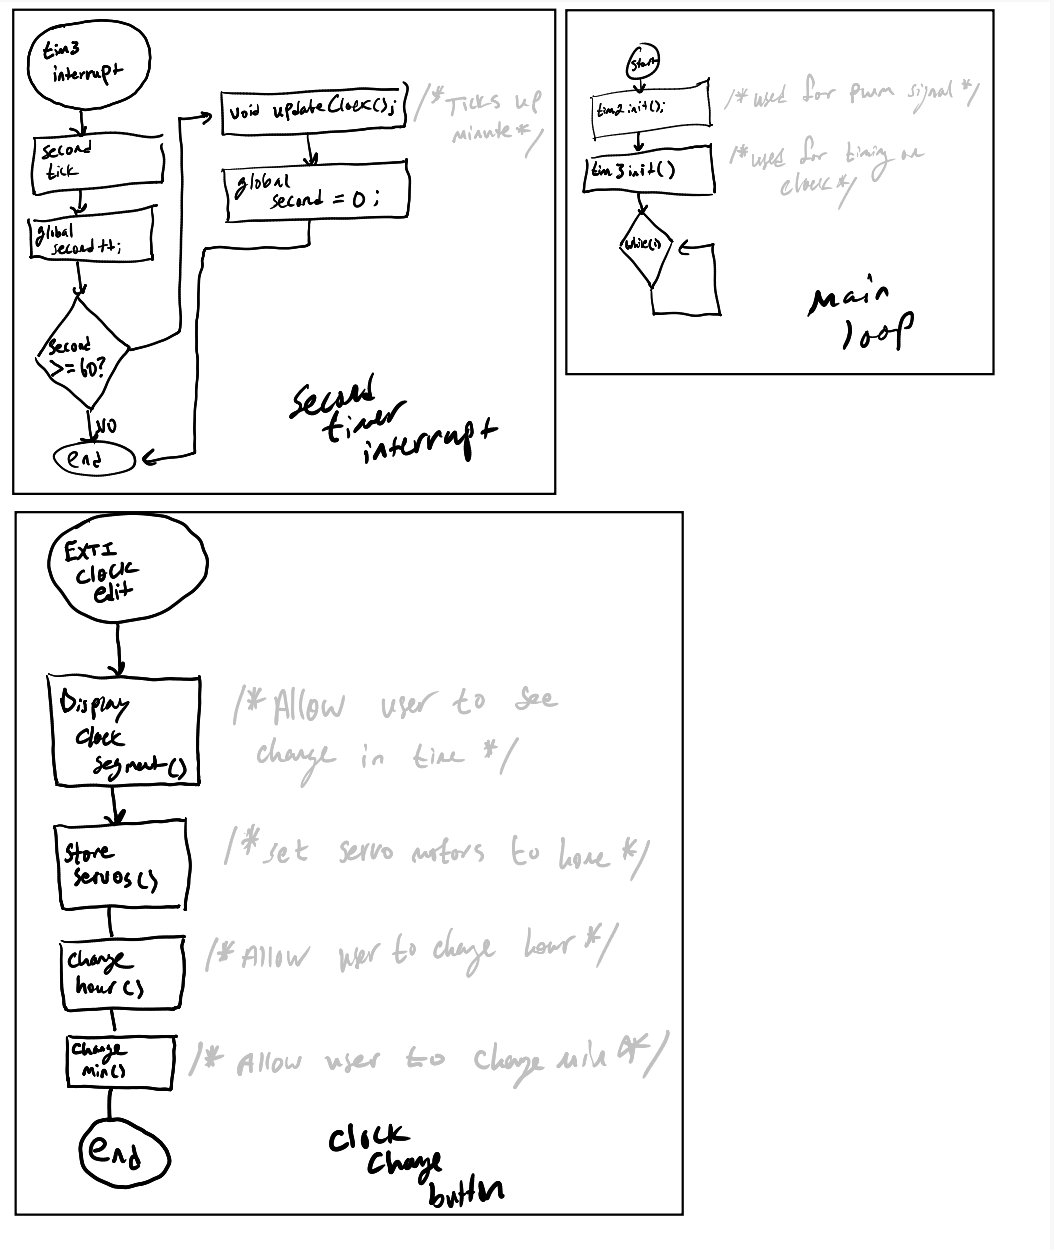 tim3
interrupt
second
tick
global
second++;
second
>=60?
NO
end
void updateClock();
/*Ticks up
minute*/
global
second = 0;
Second
timer
interrupt
start
tim2init();
/*used for pwm signal*/
tim3init()
/*used for timing on
clock*/
while(1)
Main
loop
EXTI
Clock
edit
Display
Clock
segment()
/*Allow user to see
change in time */
Store
servos()
/*set servo motors to home */
Change
hour()
/*Allow user to change hour */
Change
min()
/* Allow user to change min */
end
Clock
Change
button